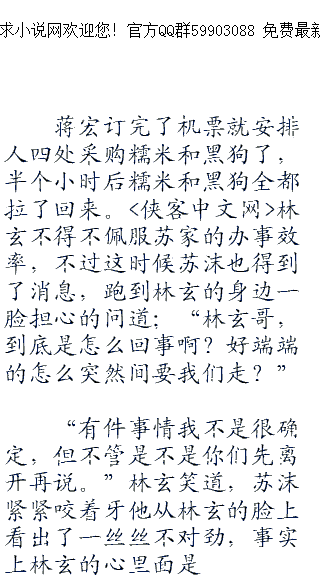 求小说网欢迎您！官方QQ群59903088 免费最新
蒋宏订完了机票就安排
人四处采购糯米和黑狗了，
半个小时后糯米和黑狗全都
拉了回来。<侠客中文网>林
玄不得不佩服苏家的办事效
率，不过这时候苏沫也得到
了消息，跑到林玄的身边一
脸担心的问道；“林玄哥，
到底是怎么回事啊？好端端
的怎么突然间要我们走？”
“有件事情我不是很确
定，但不管是不是你们先离
开再说。”林玄笑道，苏沫
紧紧咬着牙他从林玄的脸上
看出了一丝丝不对劲，事实
上林玄的心里面是